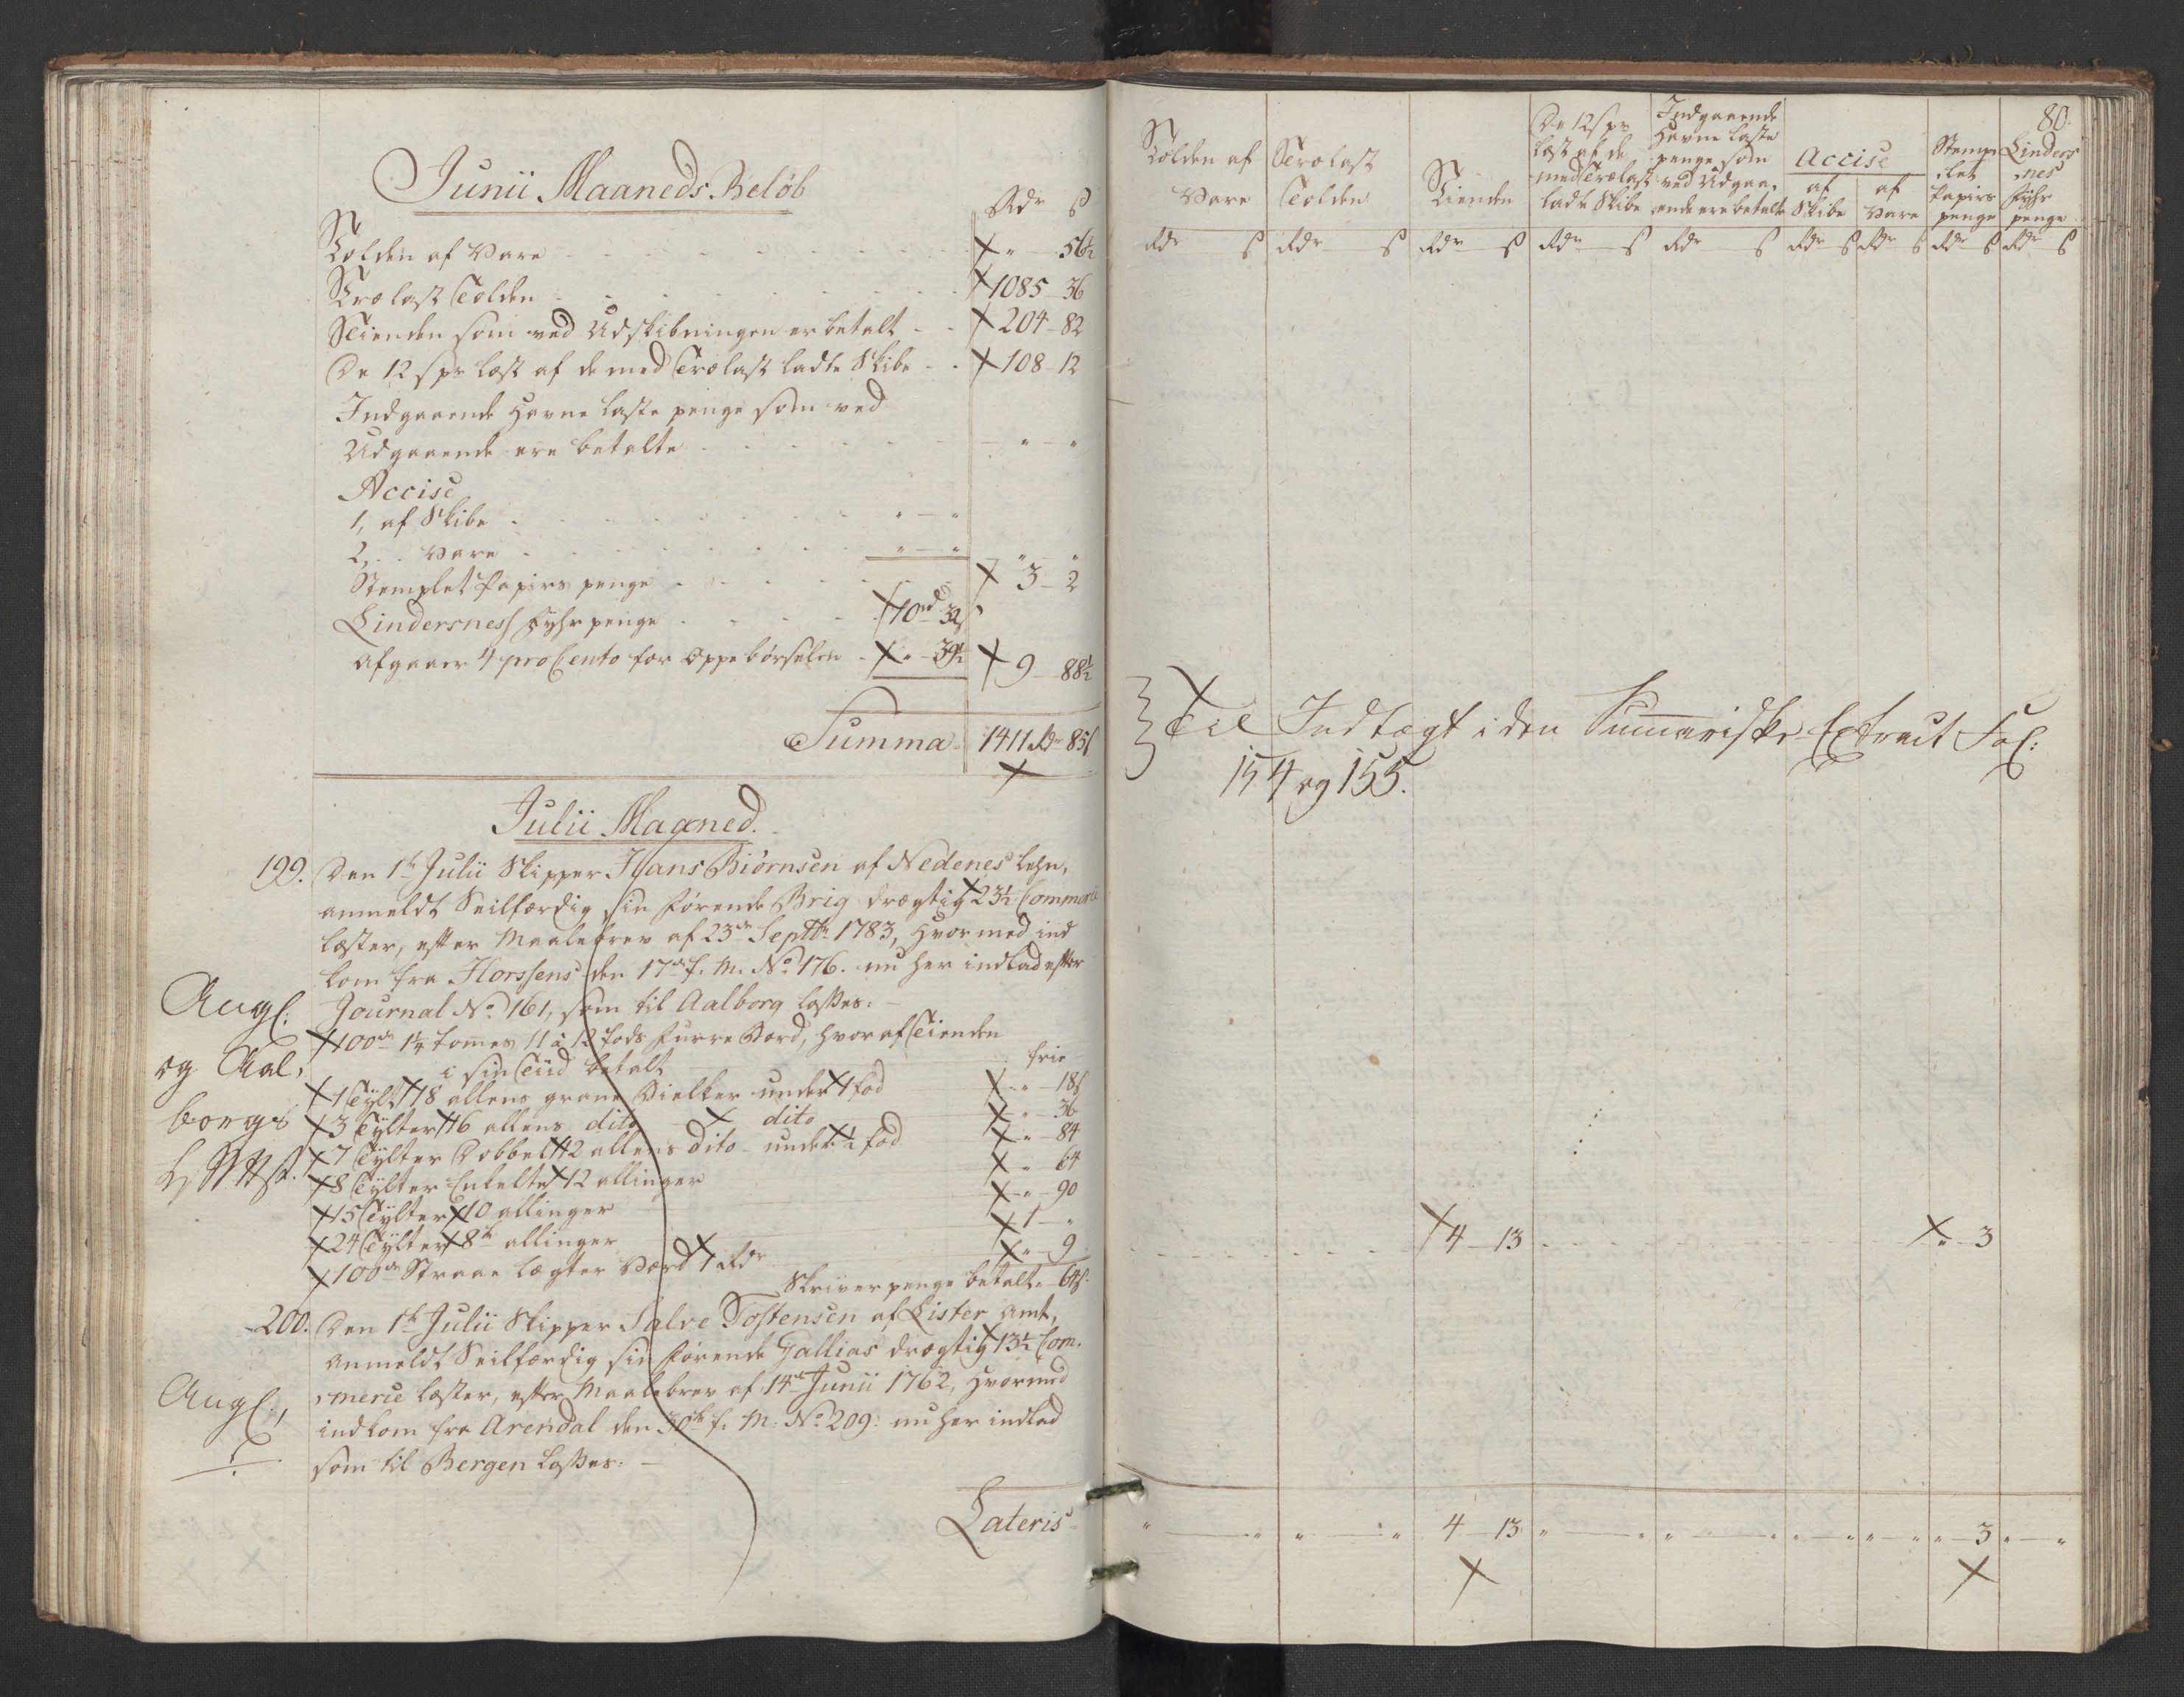 Junii Maaneds Beløb
Rdr ß
Tolden af Vare " 56½
Trælast Tolden 1085 36
Tienden som ved Udskibningen er betalt 204 82
De 12 s pr læst af de med Trælast ladte Skibe 108 12
Indgaaende Havne laste penge som ved
Udgaaende ere betalte " "
Accise
1, af Skibe " "
2, " Vare " " " "
Stemplet Papiirs penge 3 2
Lindersness fyhr penge 10 rd 32 s
Afgaaer 4 pro Cento for Oppebørselen " 39½ 9 88½
Summa 1411 Rdr 85 s
Julii Maaned.
199. Den 1te Julii Skipper Hans Biørnsen af Nedenes Lehn,
anmeldt Seilfærdig sin førende Brig drægtig 23½ Commerce
læster, efter Maalebrev af 23de Septbr 1783, hvormed ind
kom fra Horssens den 17de f. M. No 176. nu her indlad efter
Journal No 161, som til Aalborg losses:
100de 1¼ tommes 11 à 12 fods furre Bord, hvoraf Tienden
i sin Tiid betalt frie
1 Tylt 18 allens grane Bielker under 1 fod " 18 s
3 Tylter 16 allens dito dito " 36
7 Tylter Dobbelt 12 allens dito under ½ fod " 84
8 Tylter Enkelte 12 allinger " 64
15 Tylter 10 allinger " 90
24 Tylter 8te allinger 1 "
100de Straae lægter Værd 1 Rdr " 9
Skriverpenge betalt 64 s.
Angl:
og Aal,
borgs
200. Den 1te Julii Skipper Salve Tostensen af Lister Amt,
Anmeldt Seilfærdig sin førende Gallias drægtig 13½ Com,
merce læster, efter Maalebrev af 14de Junii 1762, hvormed
indkom fra Arendal den 30te f. M. No 209. nu her indlad
som til Bergen losses.
Angl:,
Lateris
80.
Tolden af Vare
Trælast Tolden
Tienden
De 12 s pr læst af de med Trælast ladte Skibe
Indgaaende Havne laste penge som ved Udgaa, ende ere betalte
Accise
af Skibe
af Vare
Stemp, let Papiirs penge
Linders, nes fyhr penge
Rdr ß Rdr ß Rdr ß Rdr ß Rdr ß Rdr ß Rdr ß Rdr ß Rdr ß
Til Indtægt i den Summariske Extract Fol:
154 og 155.
4 13 " 3
" " " " 4 13 " " " " " " " " " 3 " "